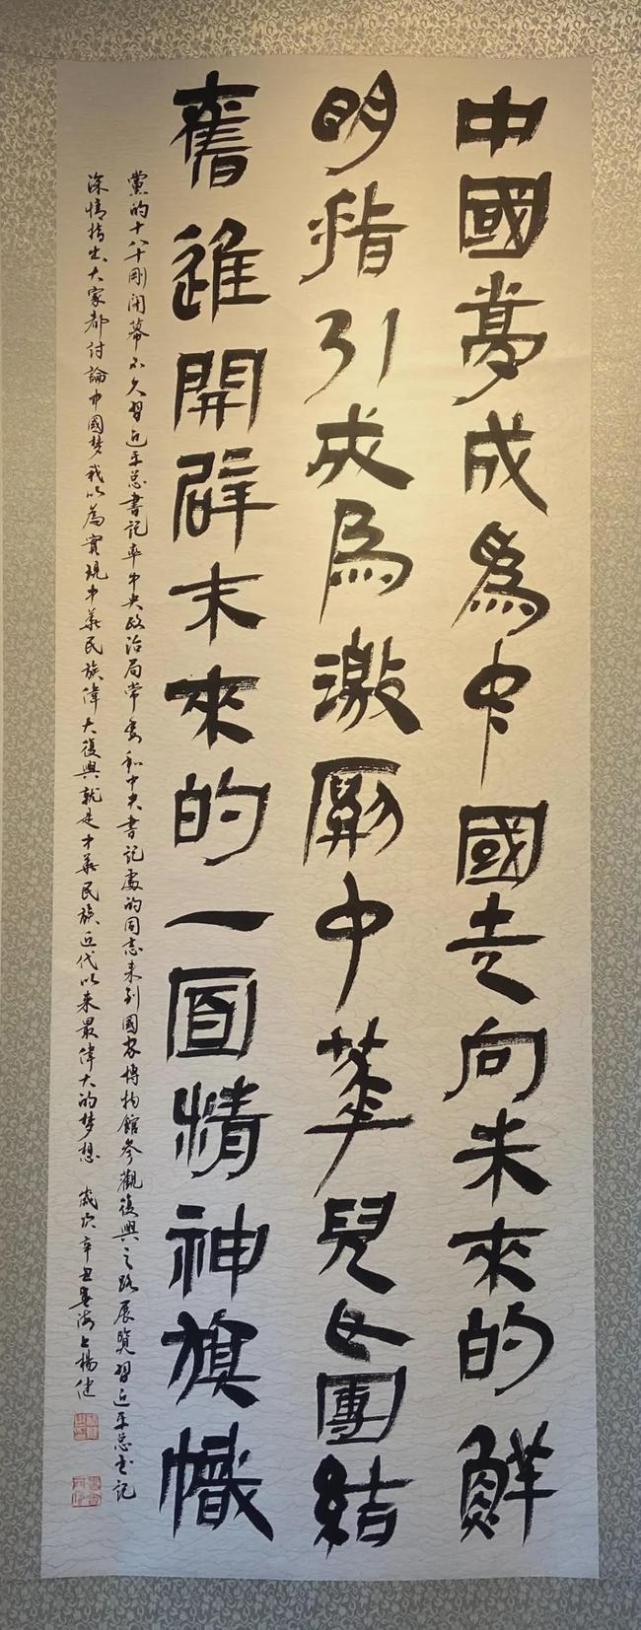 中國夢成為中國走向未來的鮮
明指引成為激勵中華兒女團結
奮進開辟未來的一面精神旗幟
黨的十八大剛閉幕不久習近平總書記率中央政治局常委和中央書記處的同志來到國家博物館參觀復興之路展覽習近平總書記
深情指出大家都討論中國梦我以為實現中華民族偉大復興就是中華民族近代以来最偉大的梦想 歲次辛丑春海上楊健